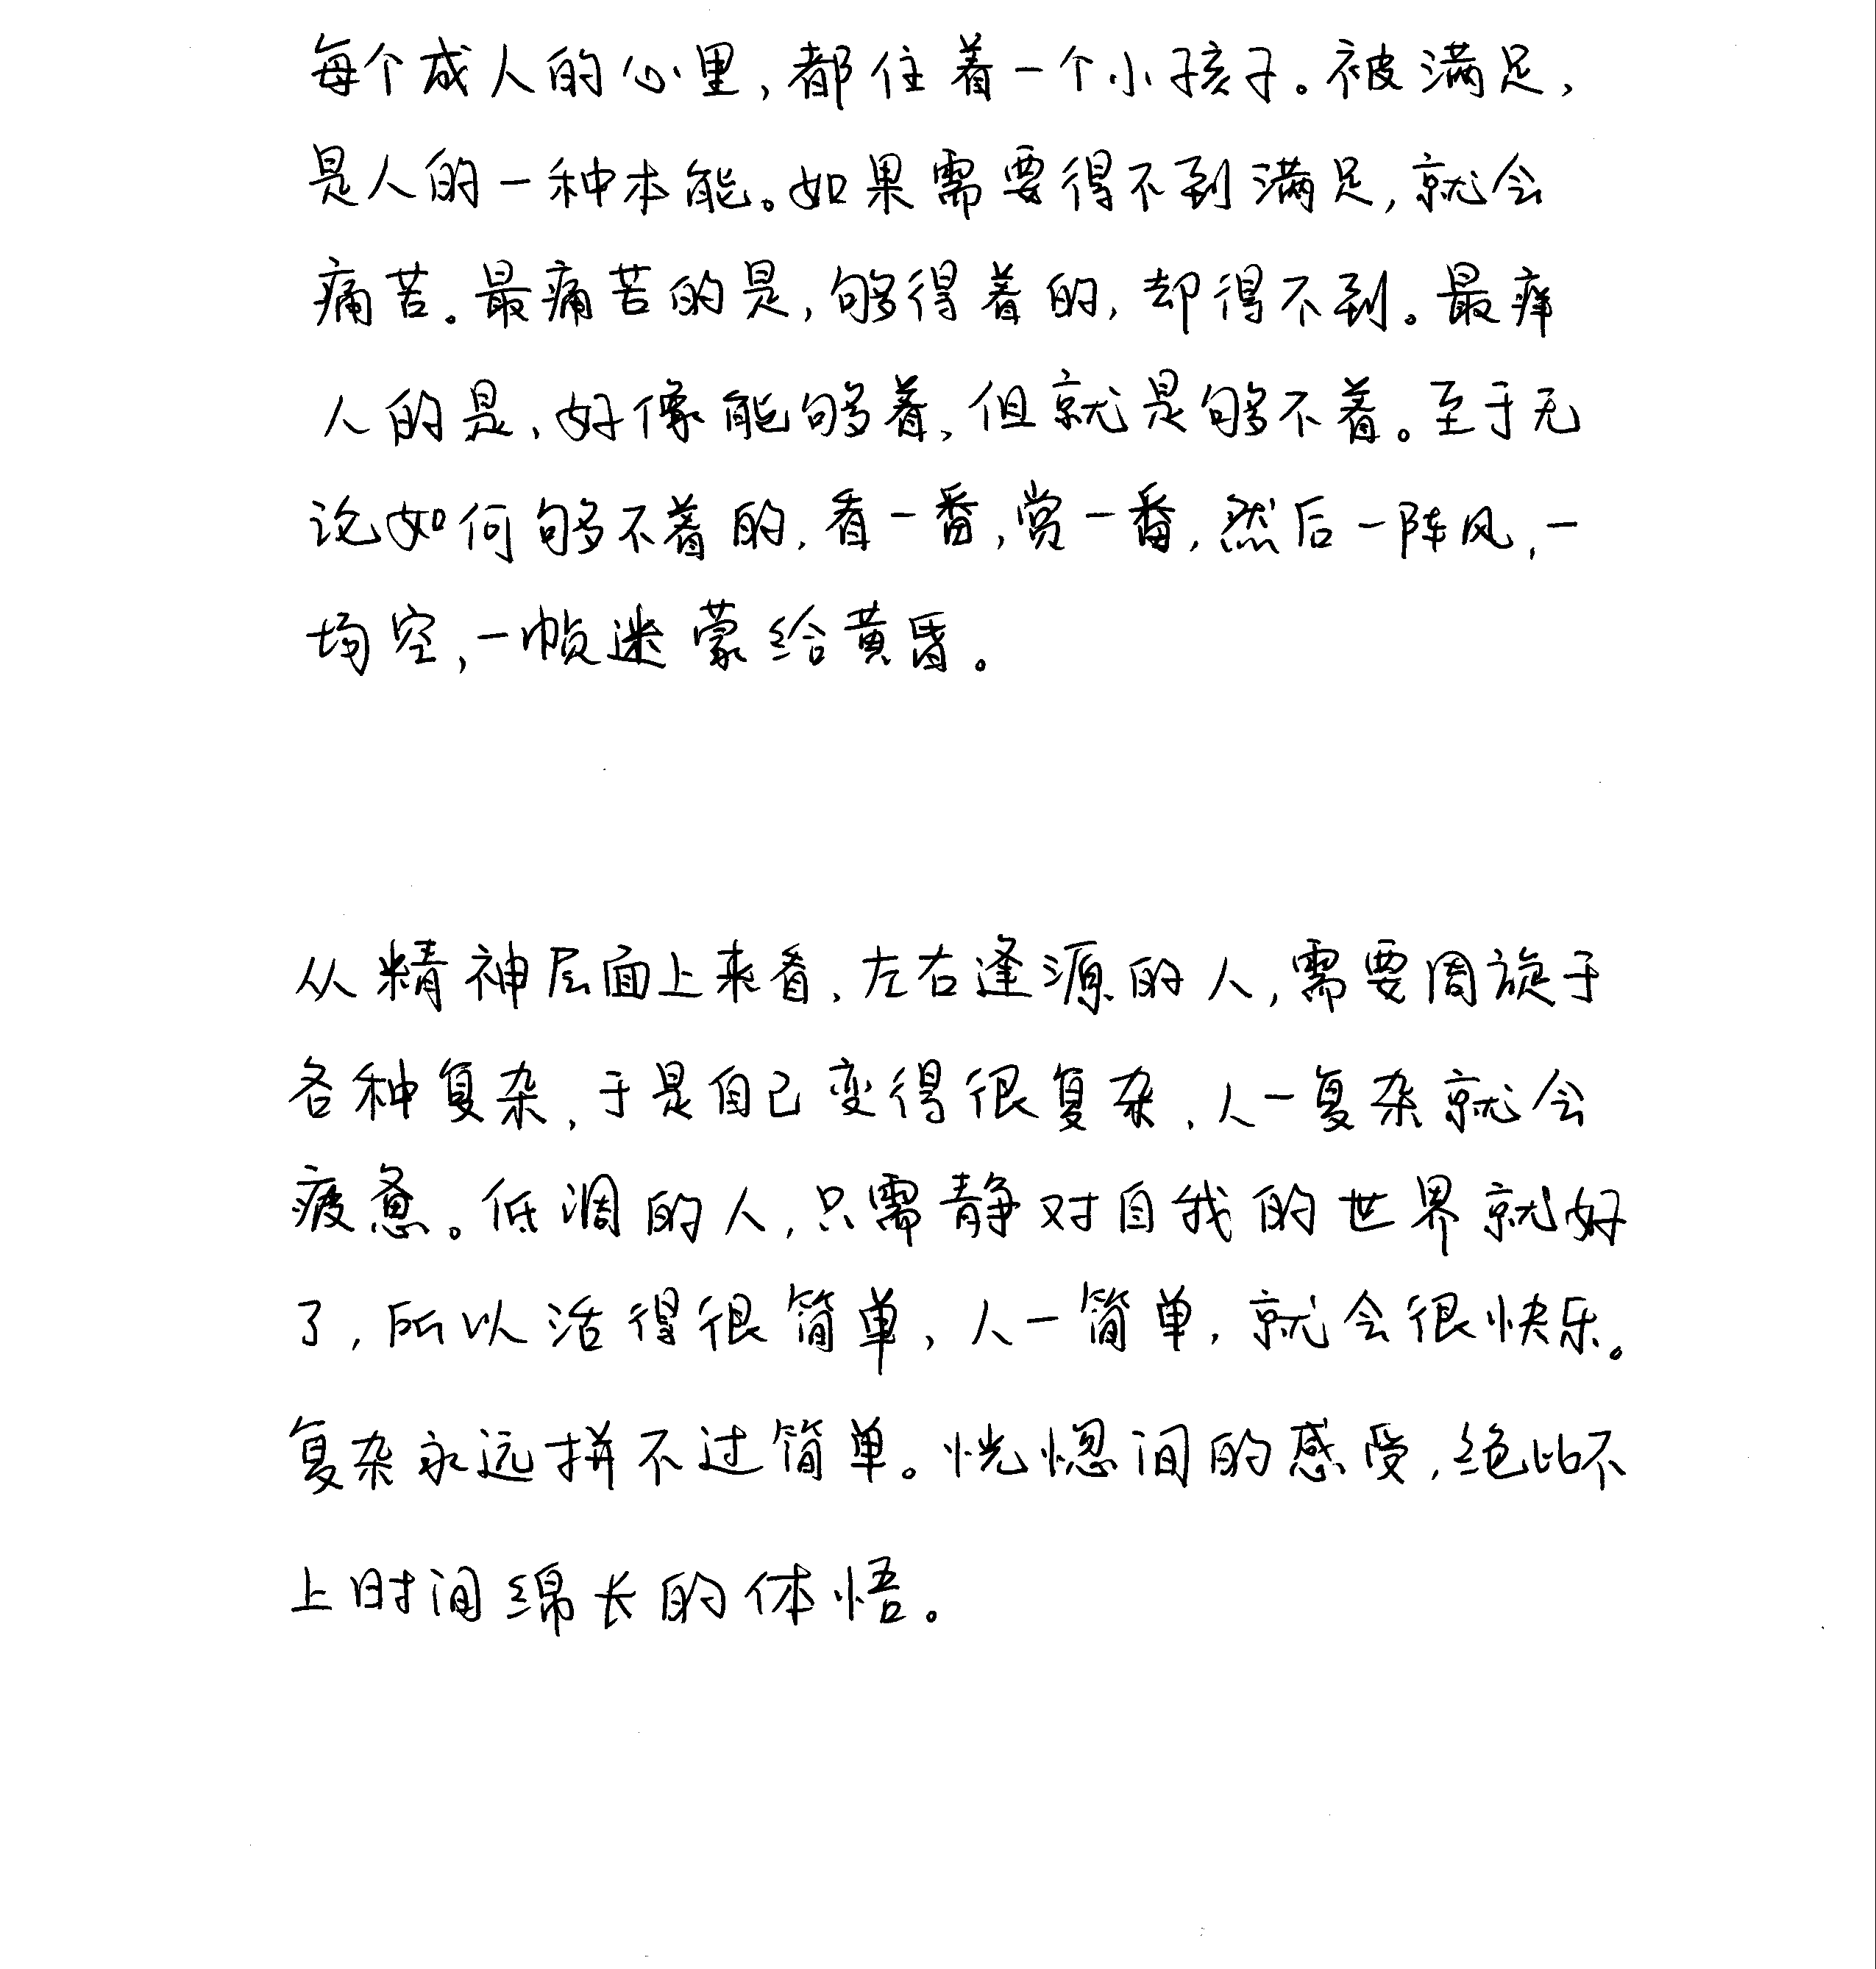 每个成人的心里,都住着一个小孩子。被满足,
是人的一种本能。如果需要得不到满足,就会
痛苦。最痛苦的是,够得着的,却得不到。最痒
人的是,好像能够着,但就是够不着。至于无
论如何够不着的,看一番,赏一番,然后一阵风,一
场空,一帧迷蒙给黄昏。
从精神层面上来看,左右逢源的人,需要周旋于
各种复杂,于是自己变得很复杂,人一复杂就会
疲惫。低调的人,只需静对自我的世界就好
了,所以活得很简单,人一简单,就会很快乐。
复杂永远拼不过简单。恍惚间的感受,绝比不
上时间绵长的体悟。